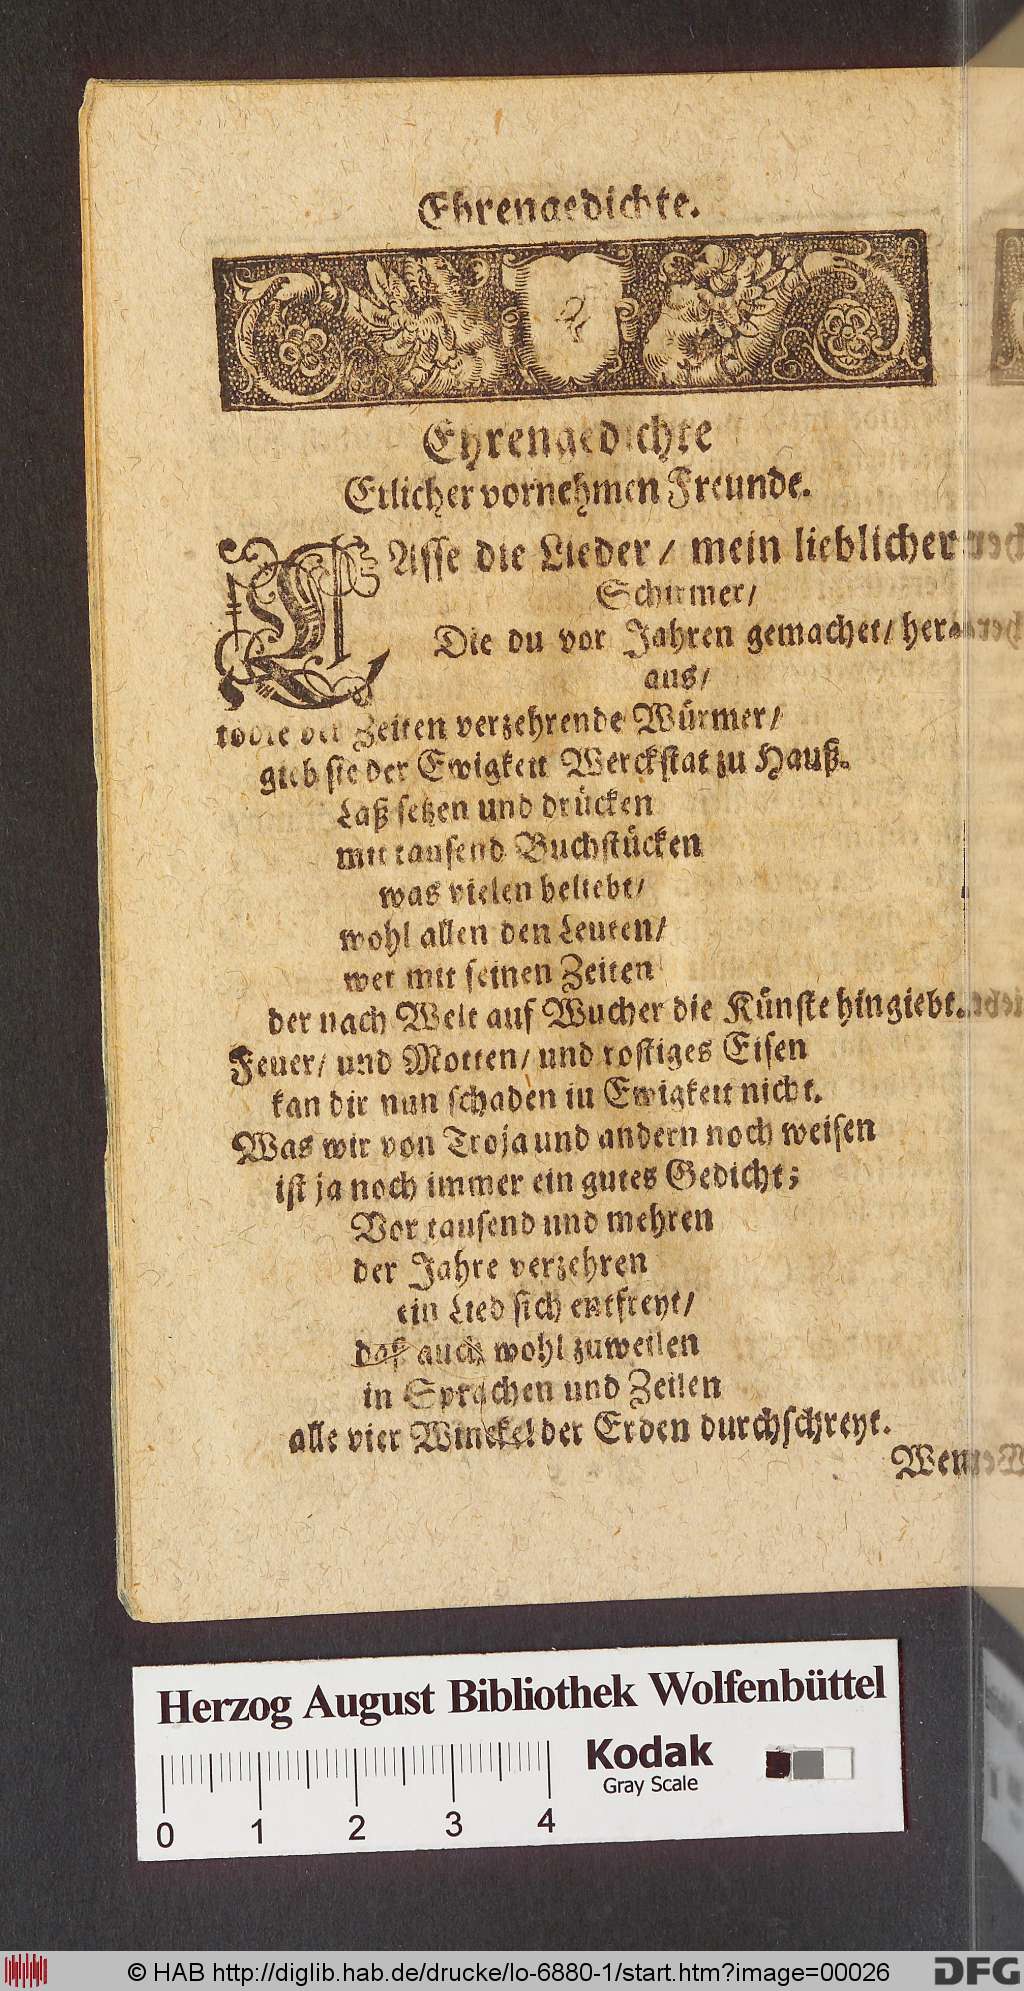 Ehrengedichte.
Ehrengedichte
Etlicher vornehmen Freunde.
LAsse die Lieder / mein lieblicher
Schirmer/
Die du vor Jahren gemachet/ her-
aus/
tödte der Zeiten verzehrende Würmer/
gieb sie der Ewigkeit Werckstat zu Hauß.
Laß setzen und drücken
mit tausend Buchstücken
was vielen beliebt/
wohl allen den Leuten/
wer mit seinen Zeiten
der nach Welt auf Wucher die Künste hingiebt.
Feuer/ und Motten/ und rostiges Eisen
kan dir nun schaden in Ewigkeit nicht.
Was wir von Troja und andern noch weisen
ist ja noch immer ein gutes Gedicht;
Vor tausend und mehren
der Jahre verzehren
ein Lied sich entfreyt/
daß auch wohl zuweilen
in Sprachen und Zeilen
alle vier Winckel der Erden durchschreyt.
Wenn
Herzog August Bibliothek Wolfenbüttel
Kodak
Gray Scale
0 1 2 3 4
© HAB http://diglib.hab.de/drucke/lo-6880-1/start.htm?image=00026
DFG